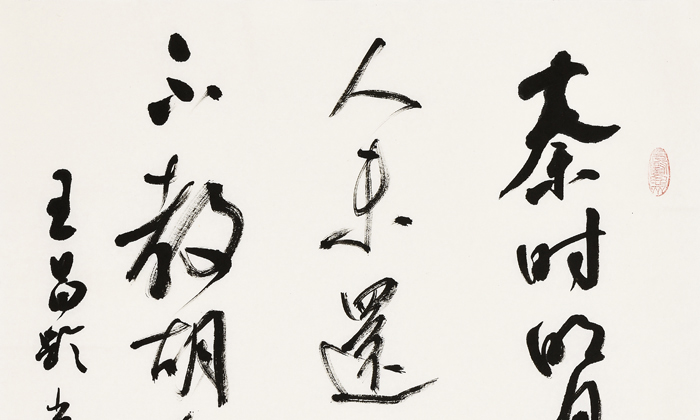 秦时明月
人未還
不教胡
王昌龄